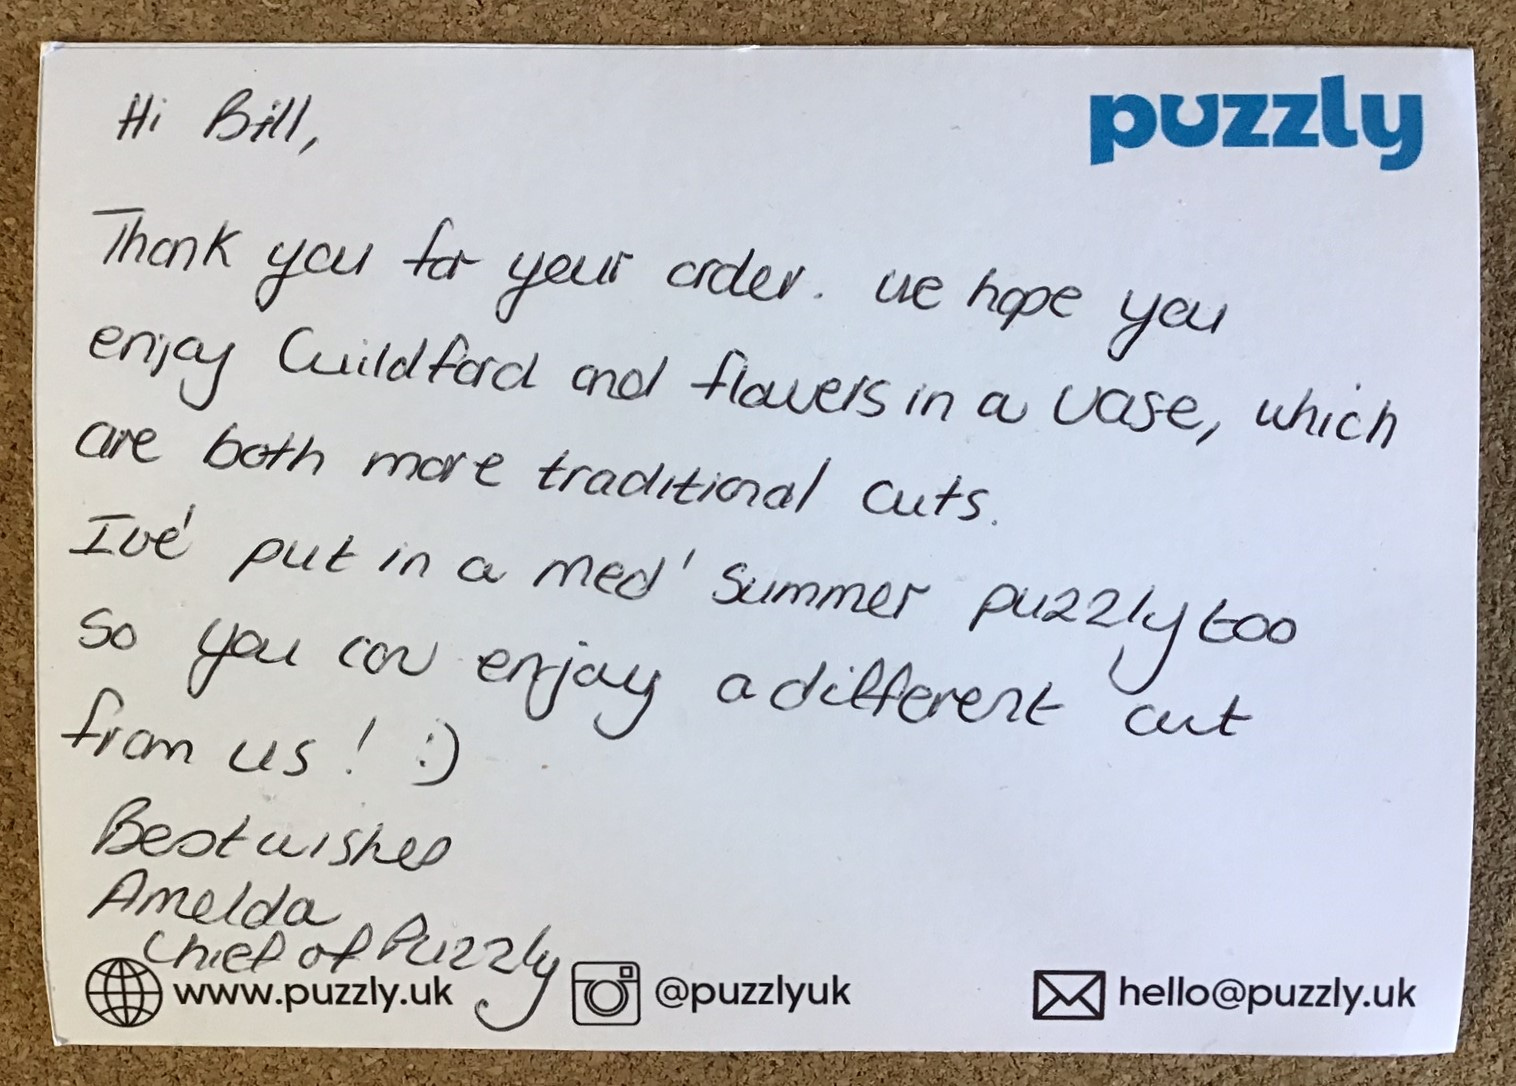 puzzly
Hi Bill,
Thank you for your order. we hope you
enjoy Guildford and flowers in a vase, which
are both more traditional cuts.
Ive' put in a med' summer puzzly too
so you can enjoy a different cut
from us! :)
Best wishes
Amelda
Chief of Puzzly
www.puzzly.uk @puzzlyuk hello@puzzly.uk